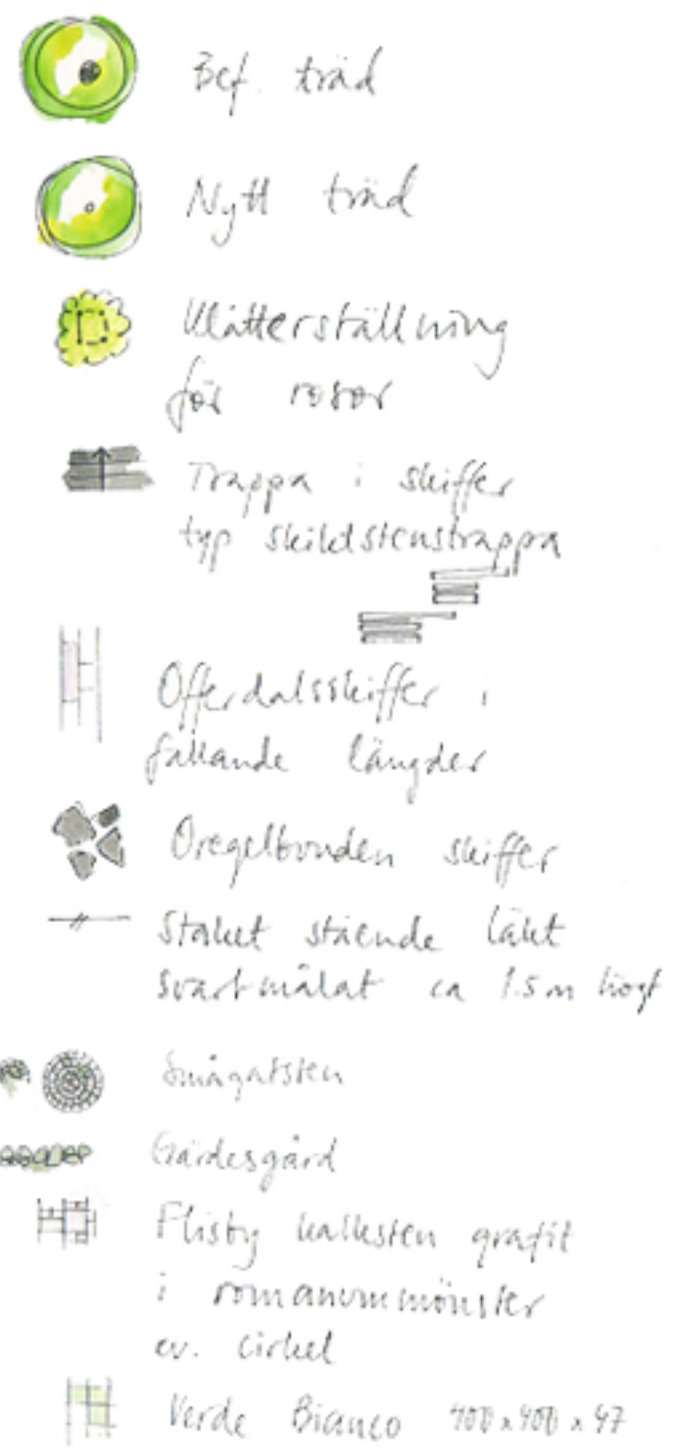 Bef. träd
Nytt träd
Klätterställning
för rosor
Trappa i skiffer
typ skildstenstrappa
Offerdalsskiffer i
fallande längder
Oregelbunden skiffer
Staket stående läkt
svartmålat ca 1.5 m högt
Smågatsten
Gärdesgård
Flisby kalksten grafit
i romanummönster
ev. cirkel
Verde Bianco 400x400x47